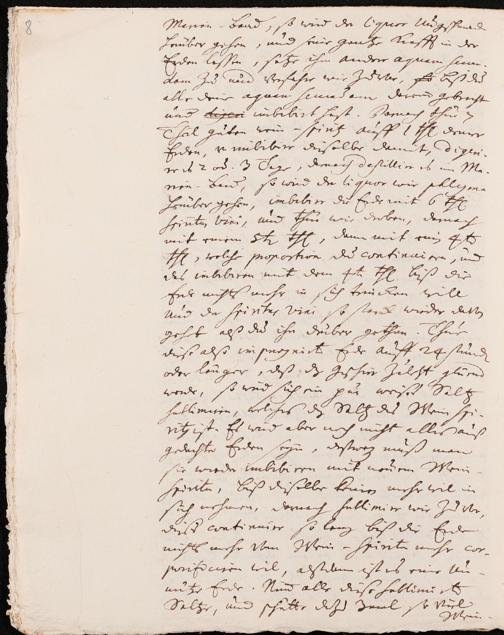 8
Marien-Baad, so wird der liquor
herüber gehen, und seine gantze Krafft in der
Erden lassen, setze ihm andere aquam
zu und verfahre wie zuvor, biß du
alle deine aquam darein gebracht
und imbibirt hast. Darnach thue
Theil guten wein-spirit auff 1 thl deiner
Erden, imbibire dieselbe damit, digeri-
re es 2 od. 3 Tage, demnach destillier es im Ma-
rien-Baad, so wird der liquor wie phlegma
herüber gehen, imbibire die Erde mit 6 thl
spiritus vini, und thue wie droben, demnach
mit einem 5tl thl, dann mit ein 4t
thl, welche proportion du continuire, und
das imbibiren mit dem 4t thl biß die
Erde nichts mehr in sich trincken will
und der spiritus vini so starck wieder davon
geht als du ihn drüber gethan. Thue
diese also impregnirte Erde auff 24 stund
oder länger, daß das
werde, so wird sich ein gar weißes Saltz
sublimiren, welches das Saltz des Wein spi-
ritus ist. Es wird aber noch nicht alles auß
gedachter Erden seyn, deßwegen muß man
sie wieder imbibiren mit neuem Wein-
spiritu, biß dieselbe keinen mehr wil in
sich nehmen, demnach sublimire wie zuvor,
diß continuire so lang biß die Erde
nichts mehr vom Wein-spiritu mehr cor-
porificiren wil, alsdann ist es eine un-
nütze Erde. Nimm alle diese sublimirte
Saltze, und schütte so viel
Wein-